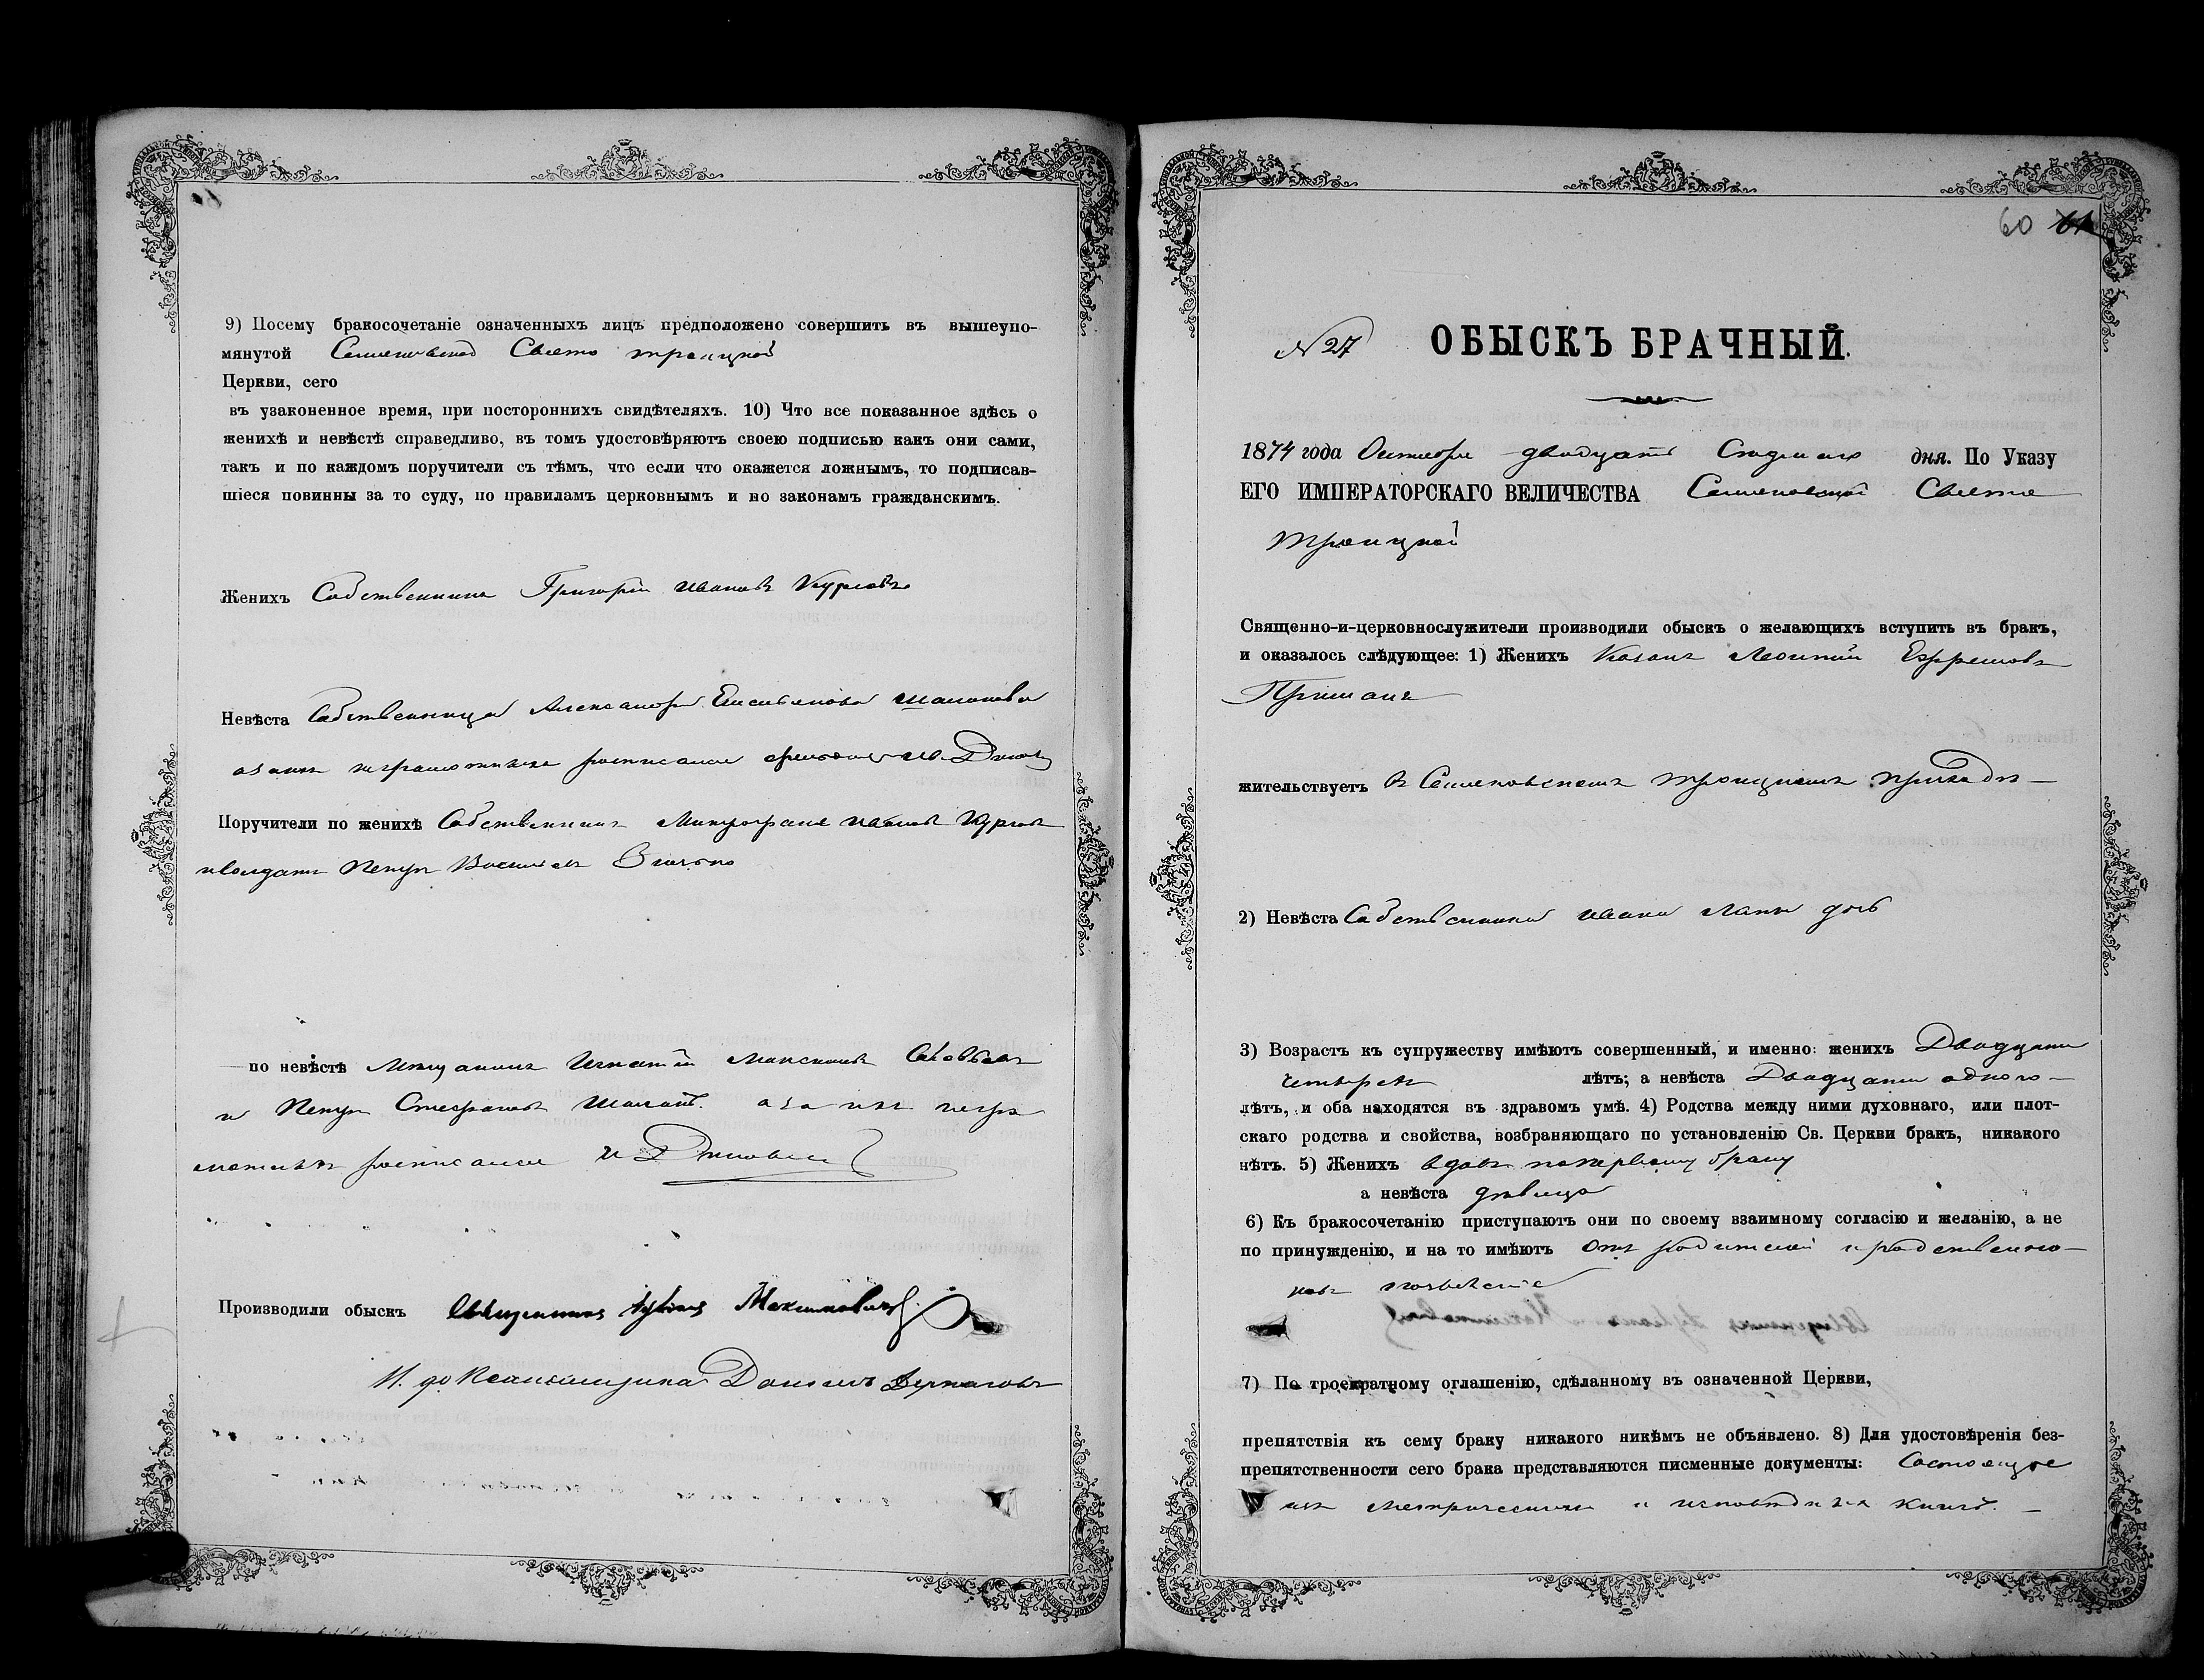 9) Посему бракосочетаніе означенныхъ лицъ предположено совершить въ вышеупо-
мянутой Семеновской Свято троицкой
Церкви, сего
въ узаконенное время, при постороннихъ свидѣтеляхъ. 10) Что все показанное здѣсь о
женихѣ и невѣстѣ справедливо, въ томъ удостовѣряютъ своею подписью какъ они сами,
такъ и по каждомъ поручители съ тѣмъ, что если что окажется ложнымъ, то подписав-
шіеся повинны за то суду, по правиламъ церковнымъ и по законамъ гражданскимъ.
Женихъ Собственникъ Григорій Ивановъ
Невѣста Собственница Александра
росписался
Поручители по женихѣ Собственникъ Ивановъ
Петръ Васильевъ
по невѣстѣ Мещанинъ Игнатій
и Петръ Стефановъ а за ихъ негра
мотныхъ росписался
Производили обыскъ Священникъ Максимовичъ
И. д. Псаломщика
60 61
№ 27 ОБЫСКЪ БРАЧНЫЙ.
1874 года Октября двадцать Седьмаго дня. По Указу
ЕГО ИМПЕРАТОРСКАГО ВЕЛИЧЕСТВА Семеновской Свято
Троицкой
Священно-и-церковнослужители производили обыскъ о желающихъ вступить въ бракъ,
и оказалось слѣдующее: 1) Женихъ Козакъ Леонтій Ефремовъ
жительствуетъ в Семеновскомъ троицкомъ приходѣ
2) Невѣста Собственника Ивана дочь
3) Возрастъ къ супружеству имѣютъ совершенный, и именно: женихъ Двадцати
четырехъ лѣтъ; а невѣста Двадцати одного
лѣтъ, и оба находятся въ здравомъ умѣ. 4) Родства между ними духовнаго, или плот-
скаго родства и свойства, возбраняющаго по установленію Св. Церкви бракъ, никакого
нѣтъ. 5) Женихъ вдовъ по первому браку
а невѣста дѣвица
6) Къ бракосочетанію приступаютъ они по своему взаимному согласію и желанію, а не
по принужденію, и на то имѣютъ отъ родителей и родственни
ковъ позволеніе
7) По троекратному оглашенію, сдѣланному въ означенной Церкви,
препятствія къ сему браку никакого никѣмъ не объявлено. 8) Для удостовѣренія без-
препятственности сего брака представляются писменные документы: Состоящіе
изъ метрическихъ и исповѣдныхъ книгъ.